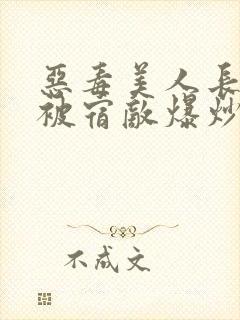 惡毒美人長
被宿敵爆炒
不成文